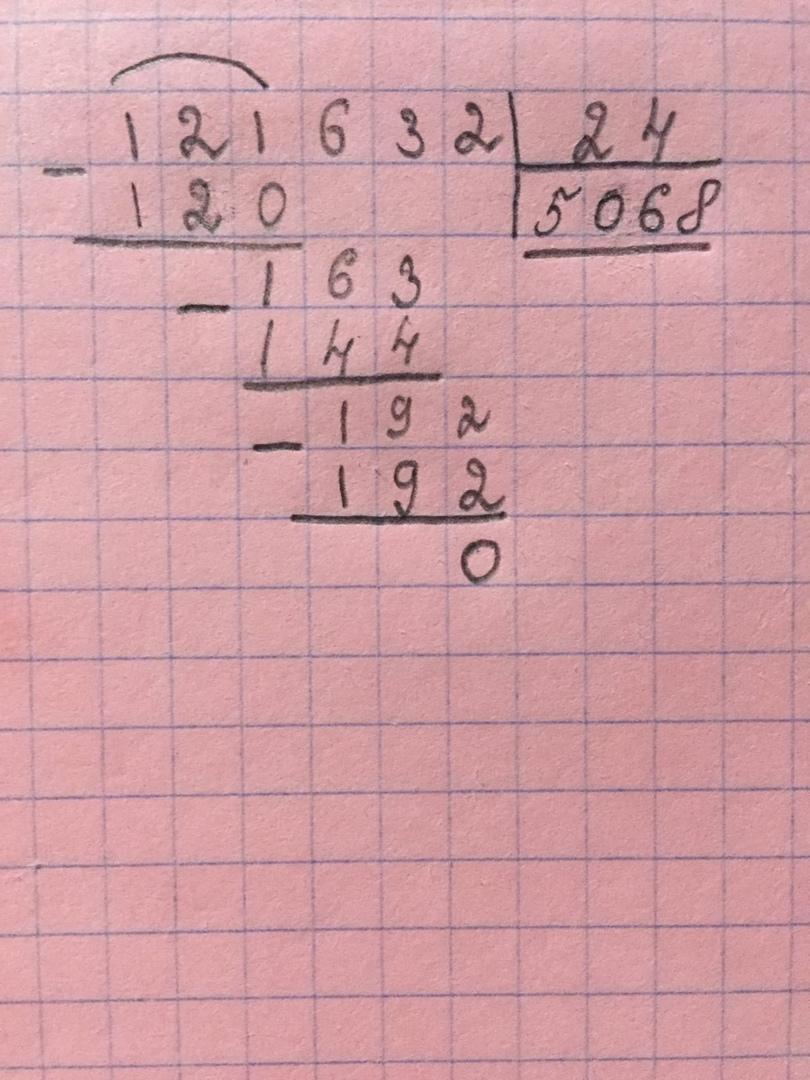 121632 | 24
- 120 | 5068
- 163
144
- 192
192
0